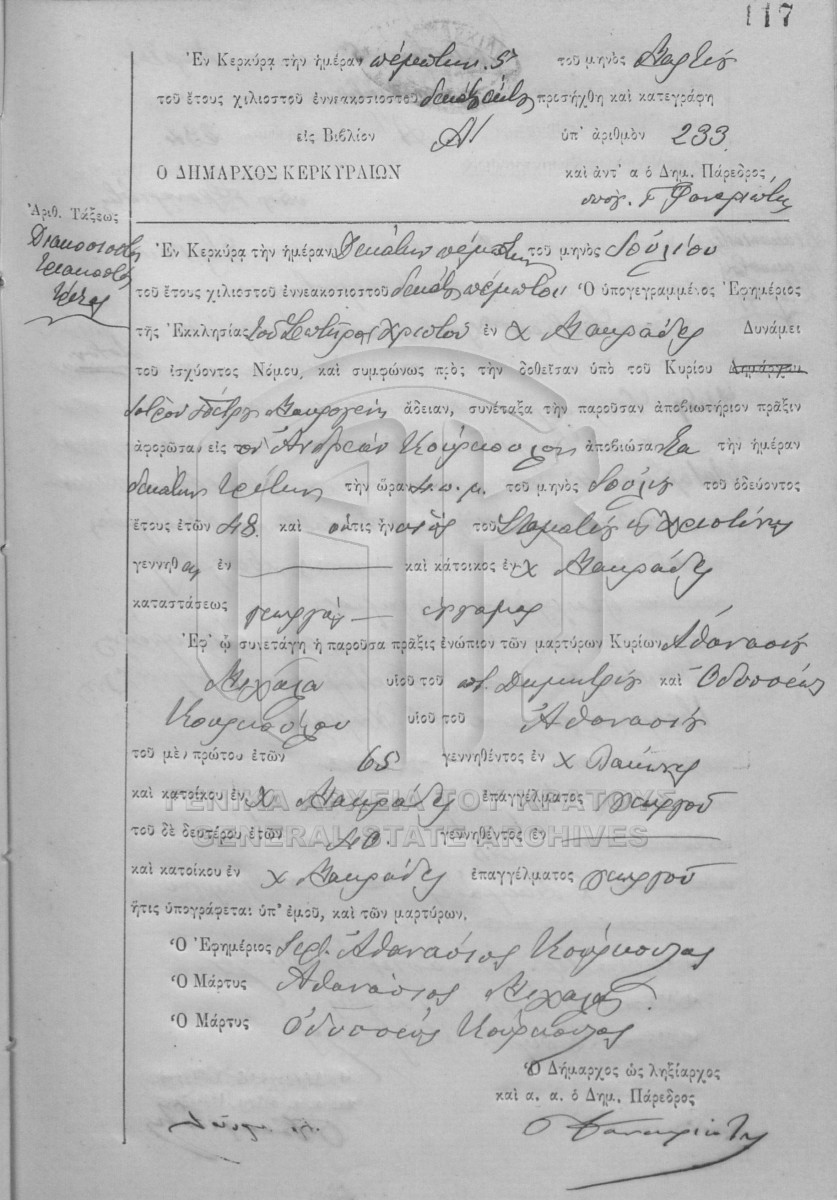 117
Ἐν Κερκύρᾳ τὴν ἡμέραν πέμπτην 5 τοῦ μηνὸς Μαρτίου
τοῦ ἔτους χιλιοστοῦ ἐννεακοσιοστοῦ προσήχθη καὶ κατεγράφη
εἰς Βιβλίον Α/ ὑπ' ἀριθμὸν 233.
Ο ΔΗΜΑΡΧΟΣ ΚΕΡΚΥΡΑΙΩΝ καὶ ἀντ' α ὁ Δημ. Πάρεδρος,
Ἀριθ. Τάξεως
Διακοσιοστὴ
τριακοστὴ
τρίτη
Ἐν Κερκύρᾳ τὴν ἡμέραν Δεκάτην πέμπτην τοῦ μηνὸς Ἰουλίου
τοῦ ἔτους χιλιοστοῦ ἐννεακοσιοστοῦ δεκάτου πέμπτου Ὁ ὑπογεγραμμένος Ἐφημέριος
τῆς Ἐκκλησίας τοῦ Σωτῆρος Χριστοῦ ἐν χ Μακράδες Δυνάμει
τοῦ ἰσχύοντος Νόμου, καὶ συμφώνως πρὸς τὴν δοθεῖσαν ὑπὸ τοῦ Κυρίου Δημάρχου
ἄδειαν, συνέταξα τὴν παροῦσαν ἀποβιωτήριον πρᾶξιν
ἀφορῶσαν εἰς τὸν Ἀνδρέαν Κούρκουλον ἀποβιώσαντα τὴν ἡμέραν
δεκάτην τρίτην τὴν ὥραν 4 π.μ. τοῦ μηνὸς Ἰουλίου τοῦ ὁδεύοντος
ἔτους ἐτῶν 48 καὶ ὅστις ἦν υἱὸς τοῦ Σταματίου καὶ Χριστίνης
γεννηθ εὶς ἐν καὶ κάτοικος ἐν χ Μακράδες
καταστάσεως γεωργὸς ἔγγαμος
Ἐφ' ᾧ συνετάγη ἡ παροῦσα πρᾶξις ἐνώπιον τῶν μαρτύρων Κυρίων Ἀθανασίου
Μιχαλᾶ υἱοῦ τοῦ ποτ. Δημητρίου καὶ Ὀδυσσέως
Κουρκούλου υἱοῦ τοῦ Ἀθανασίου
τοῦ μὲν πρώτου ἐτῶν 65 γεννηθέντος ἐν χ Λακώνες
καὶ κατοίκου ἐν χ Μακράδες ἐπαγγέλματος γεωργοῦ
τοῦ δὲ δευτέρου ἐτῶν 40. γεννηθέντος ἐν
καὶ κατοίκου ἐν χ Μακράδες ἐπαγγέλματος γεωργοῦ
ἥτις ὑπογράφεται ὑπ' ἐμοῦ, καὶ τῶν μαρτύρων.
Ὁ Ἐφημέριος Ἱερ. Ἀθανάσιος Κούρκουλος
Ὁ Μάρτυς Ἀθανάσιος Μιχαλᾶς
Ὁ Μάρτυς Ὀδυσσεὺς Κούρκουλος
Ὁ Δήμαρχος ὡς ληξίαρχος
καὶ α. α. ὁ Δημ. Πάρεδρος
ΓΕΝΙΚΑ ΑΡΧΕΙΑ ΤΟΥ ΚΡΑΤΟΥΣ
GENERAL STATE ARCHIVES